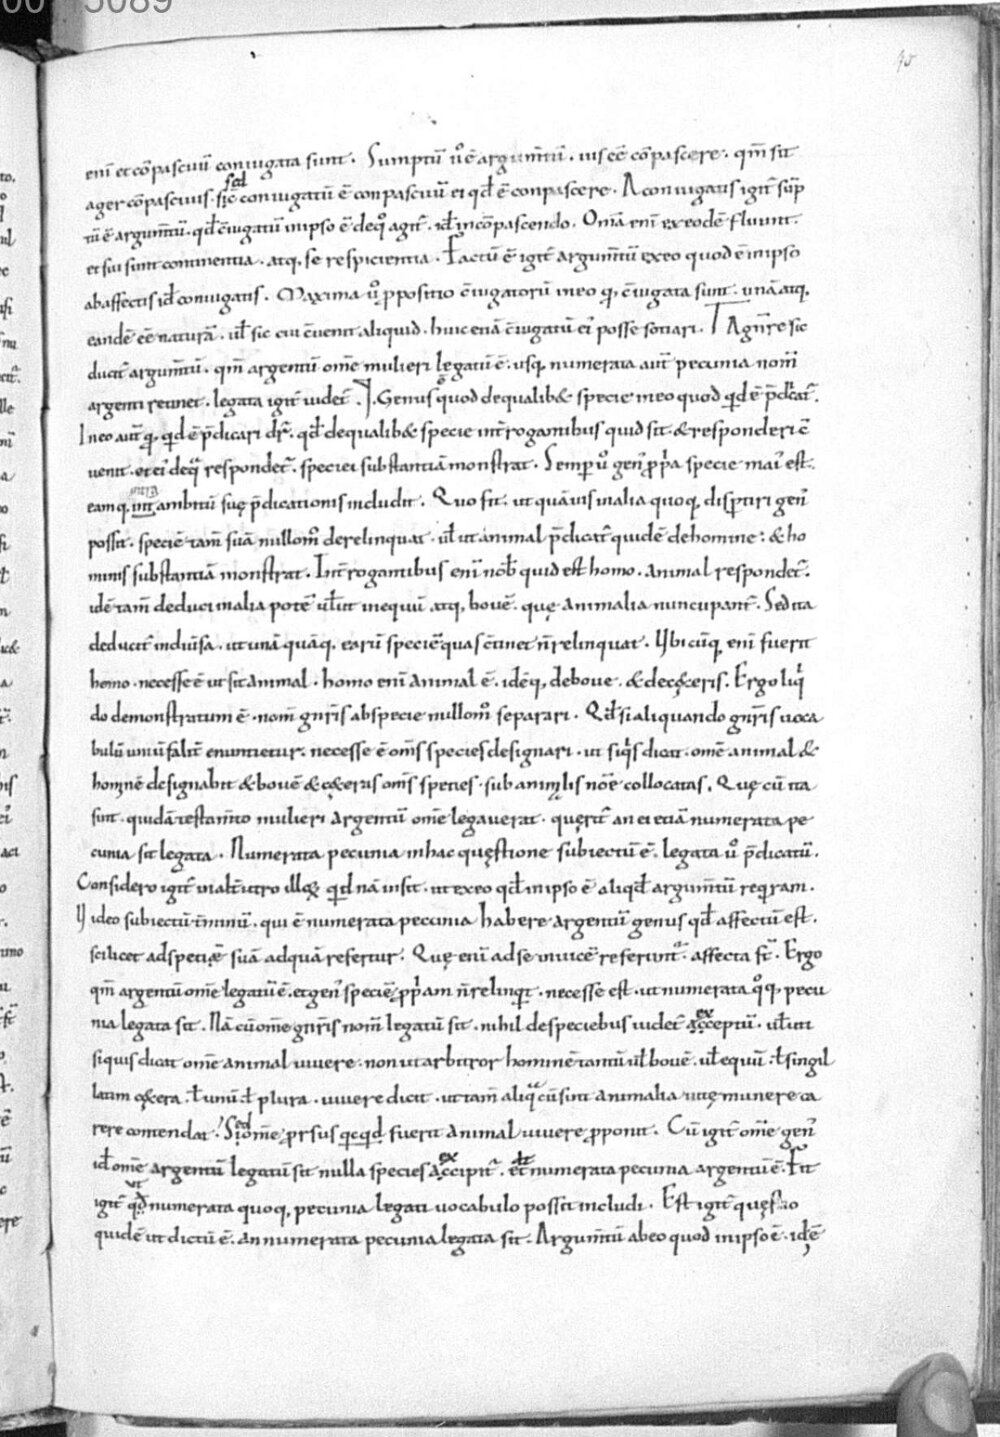 enī et cōpascuū coniugata sunt. Sumptū u̾ ē argumtū. ius eē cōpascere. qm̄ sit
ager cōpascuus. sic sed coniugatū ē conpascuū ei qd̄ ē conpascere. A coniugatis igit̄ sūp
tū ē argum̄tū. qd̄ c̄iugatū in ipso ē de q̊ agit̄. id ē in cōpascendo. Om̄a enī ex eodē fluunt.
et sui sunt continentia. atq; se respicientia. Factū ē igit̄ argum̄tū ex eo quod ē in ipso
ab affectis id ē coniugatis. Maxima u̾ ꝓpositio c̄iugatorū in eo q; c̄iugata sunt. unā atq;
eandē eē naturā. ul̄ sic cui c̄uenit aliquid. huic etiā c̄iugatū ei̾ posse sotiari. A gn̄re sic
ducit̄ argum̄tū. qm̄ argentū om̄e mulieri legatū ē. usq; numerata aut̄ pecunia nom̄
argenti retinet. legata igit̄ uidet̄. Genus ē quod de qualib& specie in eo quod qd ē p̄dicat̄.
In eo aut̄ q; qd ē p̄dicari dr̄. qd̄ de qualib& specie int̄rogationibus quid sit. & responderi c̄
uenit. et ei de q̊ respondet̄. speciei substantiā monstrat. Semp u̾ gen̾ ꝓp̄a specie mai̾ est.
eamq; int̄ intra ambitū suę p̄dicationis includit. Quo fit. ut quāuis in alia quoq; disꝑtiri gen̾
possit. speciē tam̄ suā nullom̊ derelinquat. ul̄ ut animal p̄dicat̄ quidē de homine. & ho
minis substantiā monstrat. Int̄rogantibus enī nob̄ quid est homo. animal respondet̄.
idē tam̄ deduci in alia potest ul̄ ut in equū atq; bouē. quę animalia nuncupant̄. Sed ita
deducit̄ in diuersa. ut unā quāq; earū speciē quas c̄tinet n̄ relinquat. Ubicūq; enī fuerit
homo. necesse ē ut sit animal. homo enī animal ē. idēq; de boue. & de cęteris. Ergo liq̇
do demonstratum ē. nom̄ gn̄ris ab specie nullom̊ separari. Qd̄ si aliquando gn̄ris uoca
bulū uniu̾salit̄ enuntietur. necesse ē om̄s species designari. ut siq̇s dicat. om̄e animal &
hominē designabit & bouē & cęteras om̄s species. sub animalis nōe collocatas. Quę cū ita
sint. quidā testam̄to mulieri argentū om̄e legauerat. querit̄ an ei etiā numerata pe
cunia sit legata. Numerata pecunia in hac questione subiectū ē. legata u̾ p̄dicatū.
Considero igit̄ in alt̄utro illoꝝ. qd nā insit. ut ex eo qd̄ in ipso ē aliqd̄ argum̄tū reqiram.
Uideo subiectū t̄minū. qui ē numerata pecunia habere argentū genus qd̄ affectū est.
scilicet ad speciē suā ad quā refertur. Quę enī ad se inuicē referunt̄. affecta st̄. Ergo
qm̄ argentū om̄e legatū ē. et gen̾ speciē ꝓp̄am n̄ relinqit. necesse est. ut numerata q̊q; pecu
nia legata sit. Nā cū om̄e gn̄ris nom̄ legatū sit. nihil de speciebus uidet̄ acceptū ex. ul̄ uti
siquis dicat om̄e animal uiuere. non ut arbitror hominē tantū ul̄ bouē. ul̄ equū. ł singil
latim cętera. ł unū ł plura. uiuere dicit. ut tam̄ aliq̄ cū sint animalia uitę munere ca
rere contendat. Si Sed om̄e ꝓrsus qcqd fuerit animal uiuere ꝓponit. Cū igit̄ om̄e gen̾
id̄ om̄e argentū legatū sit nulla species accipit̄ ex. numerata pecunia argentū ē. Fit
igit̄ qd̄ ut numerata quoq; pecunia legati uocabulo possit includi. Est igit̄ questio
quidē ut dictū ē. an numerata pecunia legata sit. Argum̄tū ab eo quod in ipso ē. id ē